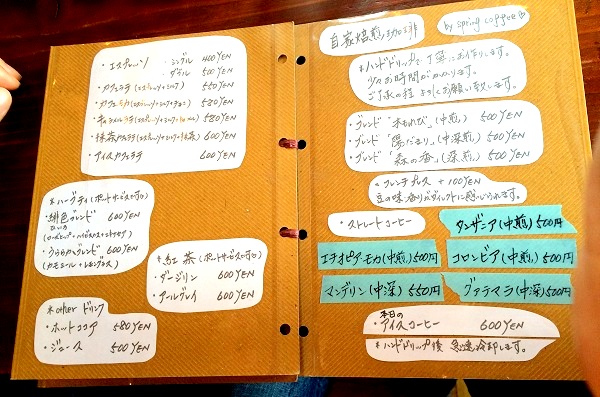 ・エスプレッソ ・シングル 400YEN
・ダブル 500YEN
・カフェラテ(エスプレッソ+ミルク) 550YEN
・カフェモカ(エスプレッソ+ミルク+チョコ) 520YEN
・キャラメルラテ(エスプレッソ+ミルク+キャラメル) 580YEN
・抹茶カフェラテ(エスプレッソ+ミルク+抹茶) 600YEN
・アイスカフェラテ 600YEN
*ハーブティ(ポットサービスで可)
・緋色ブレンド 600YEN
ひいろ
(ローズヒップ+ハイビスカス+
・うららかブレンド 600YEN
(カモミール+レモングラス)
*紅茶(ポットサービスで可)
・ダージリン 600YEN
・アールグレイ 600YEN
*otherドリンク
・ホットココア 580YEN
・ジュース 500YEN
自家焙煎珈琲
by spring coffee
*ハンドドリップで丁寧にお作りします。
少々お時間がかかります。
ご了承の程 よろしくお願い致します。
・ブレンド「木もれび」(中煎) 500YEN
・ブレンド「陽だまり」(中深煎) 500YEN
・ブレンド「森の香」(深煎) 500YEN
*フレンチプレス +100YEN
豆の味・香りがダイレクトに感じられます。
・ストレートコーヒー
タンザニア(中煎)500円
エチオピアモカ(中煎)550円
コロンビア(中煎)500円
マンデリン(中深)550円
グァテマラ(中深)500円
本日の
・アイスコーヒー 600YEN
*ハンドドリップ後 急速冷却します。